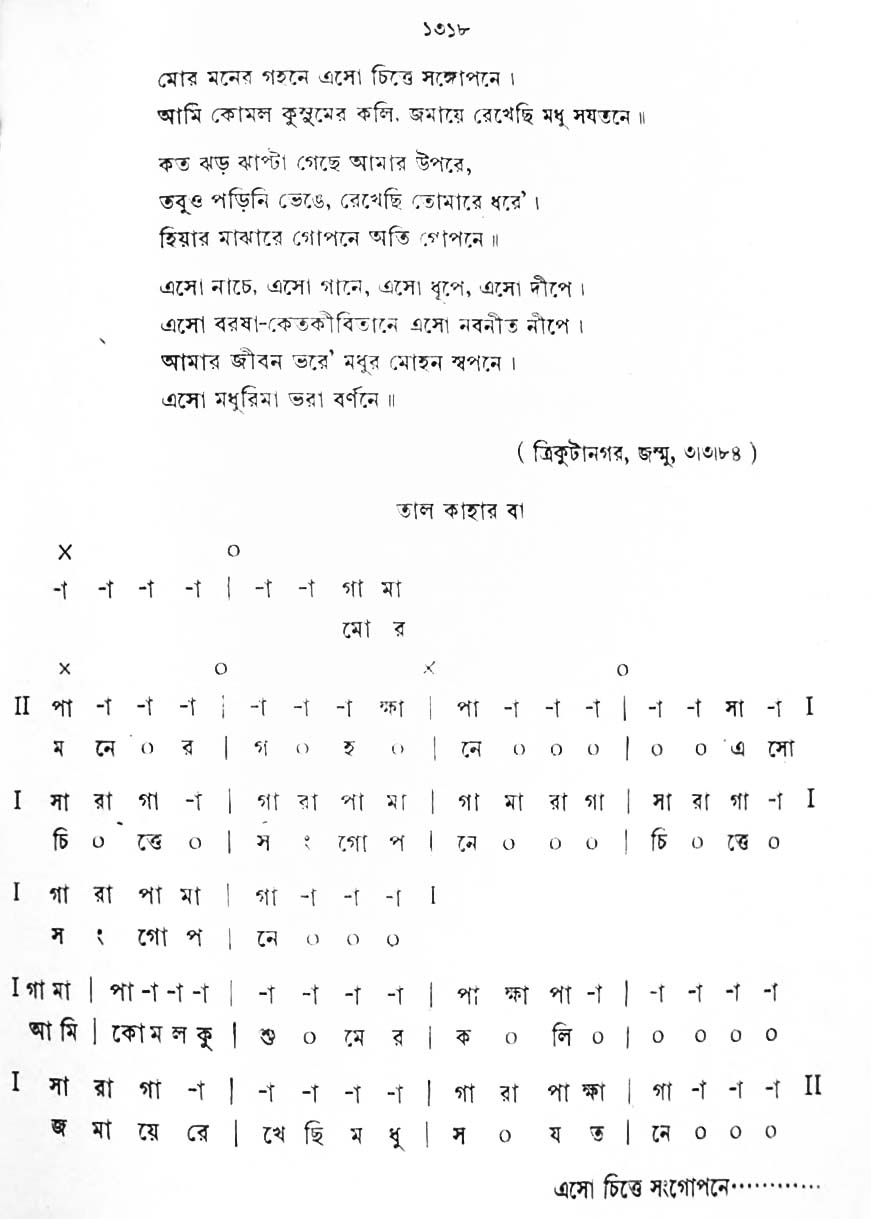 ১৩১৮
মোর মনের গহনে এসো চিত্তে সঙ্গোপনে ।
আমি কোমল কুসুমের কলি, জমায়ে রেখেছি মধু সযতনে ॥
কত ঝড় ঝাপ্টা গেছে আমার উপরে,
তবুও পড়িনি ভেঙে, রেখেছি তোমারে ধরে' ।
হিয়ার মাঝারে গোপনে অতি গোপনে ॥
এসো নাচে, এসো গানে, এসো ধূপে, এসো দীপে ।
এসো বরষা-কেতকীবিতানে এসো নবনীত নীপে ।
আমার জীবন ভরে' মধুর মোহন স্বপনে ।
এসো মধুরিমা ভরা বর্ণনে ॥
( ত্রিকুটানগর, জম্মু, ৩।৩।৮৪ )
তাল কাহার বা
× ০
-া -া -া -া | -া -া গা মা
মো র
× ০ × ০
II পা -া -া -া | -া -া -া ক্ষা | পা -া -া -া | -া -া সা -া I
ম নে ০ র | গ ০ হ ০ | নে ০ ০ ০ | ০ ০ এ সো
I সা রা গা -া | গা রা পা মা | গা মা রা গা | সা রা গা -া I
চি ০ ত্তে ০ | স ং গো প | নে ০ ০ ০ | চি ০ ত্তে ০
I গা রা পা মা | গা -া -া -া I
স ং গো প | নে ০ ০ ০
I গা মা | পা -া -া -া | -া -া -া -া | পা ক্ষা পা -া | -া -া -া -া
আ মি | কো ম ল কু | শু ০ মে র | ক ০ লি ০ | ০ ০ ০ ০
I সা রা গা -া | -া -া -া -া | গা রা পা ক্ষা | গা -া -া -া II
জ মা য়ে রে | খে ছি ম ধু | স ০ য ত | নে ০ ০ ০
এসো চিত্তে সংগোপনে············